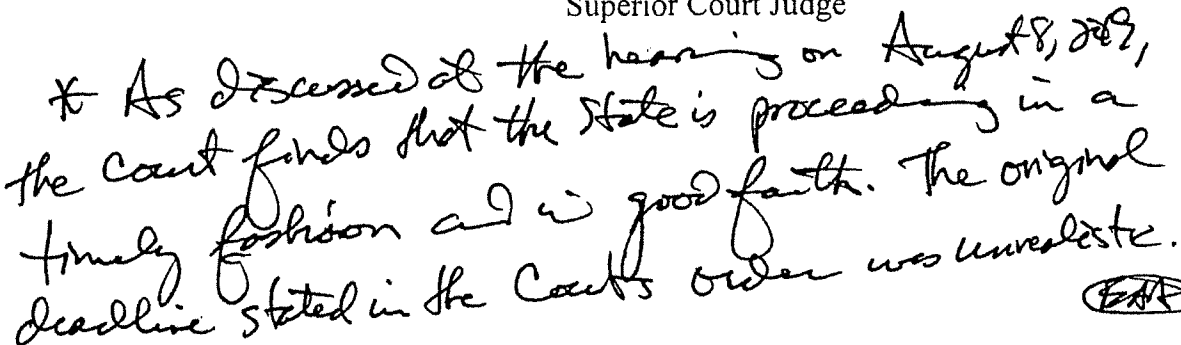 Superior Court Judge
* As discussed at the hearing on August 8, 2019,
the Court finds that the State is proceeding in a
timely fashion and in good faith. The original
deadline stated in the Court's order was unrealistic.